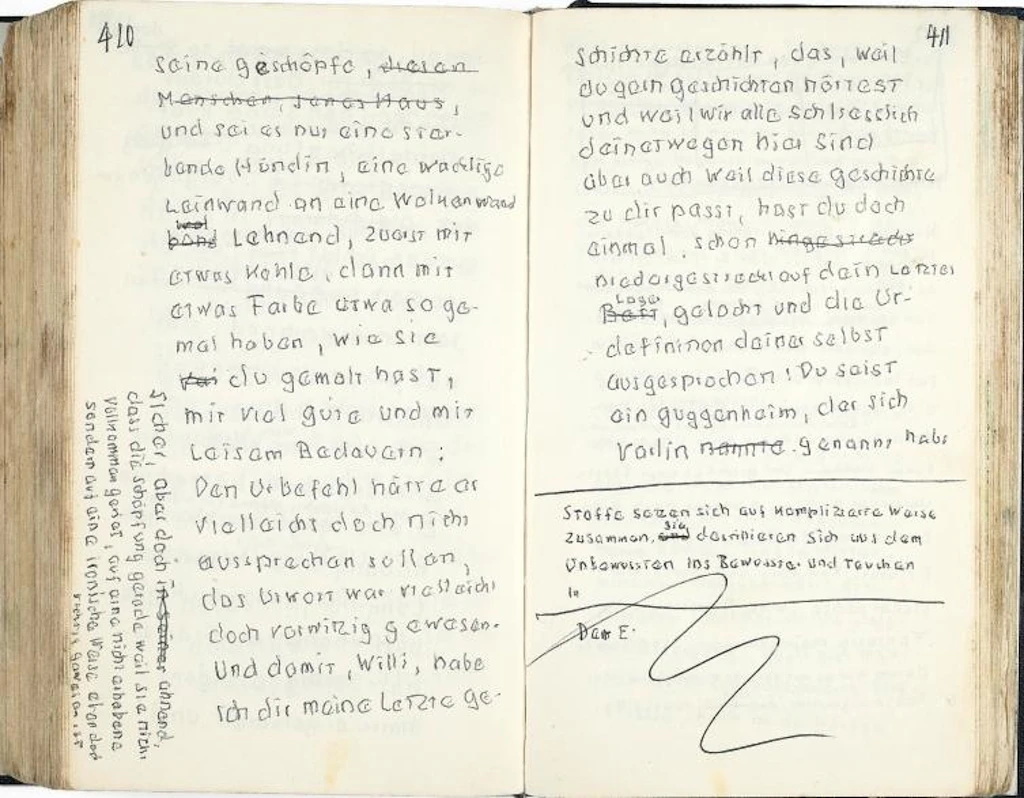 410
seine geschöpfe, diesen
Menschen, jenes Haus,
und sei es nur eine ster-
bende Hündin, eine wacklige
Leinwand an eine Wolkenwand
wol
band Lehnend, zuerst mit
etwas Kohle, dann mit
etwas Farbe etwa so ge-
malt haben, wie sie
du gemalt hast,
mit viel güte und mit
Leisem Bedauern:
Den Urbefehl hätte er
vielleicht doch nicht
aussprechen sollen,
das Urwort war vielleicht
doch vorwitzig gewesen.
Und damit, Willi, habe
ich dir meine Letzte ge-
sicher, aber doch in seiner ahnend,
dass die schöpfung gerade weil sie nicht
vollkommen geriet, auf eine nicht erhabene
sondern auf eine ironische Weise eben doch
richtig gewesen ist
411
schichte erzählt, das, weil
du gern geschichten hörtest
und weil wir alle schliesslich
deinetwegen hier sind
aber auch weil diese geschichte
zu dir passt, hast du doch
einmal, schon hingestreckt
niedergestreckt auf dein Letztes
Lager
Bett, gelacht und die Ur-
definition deiner selbst
ausgesprochen: Du seist
ein guggenheim, der sich
Varlin nannte. genannt habe
Stoffe setzen sich auf komplizierte Weise
zusammen, sie
und destillieren sich aus dem
Unbewussten ins Bewusste und tauchen
in
Der E.